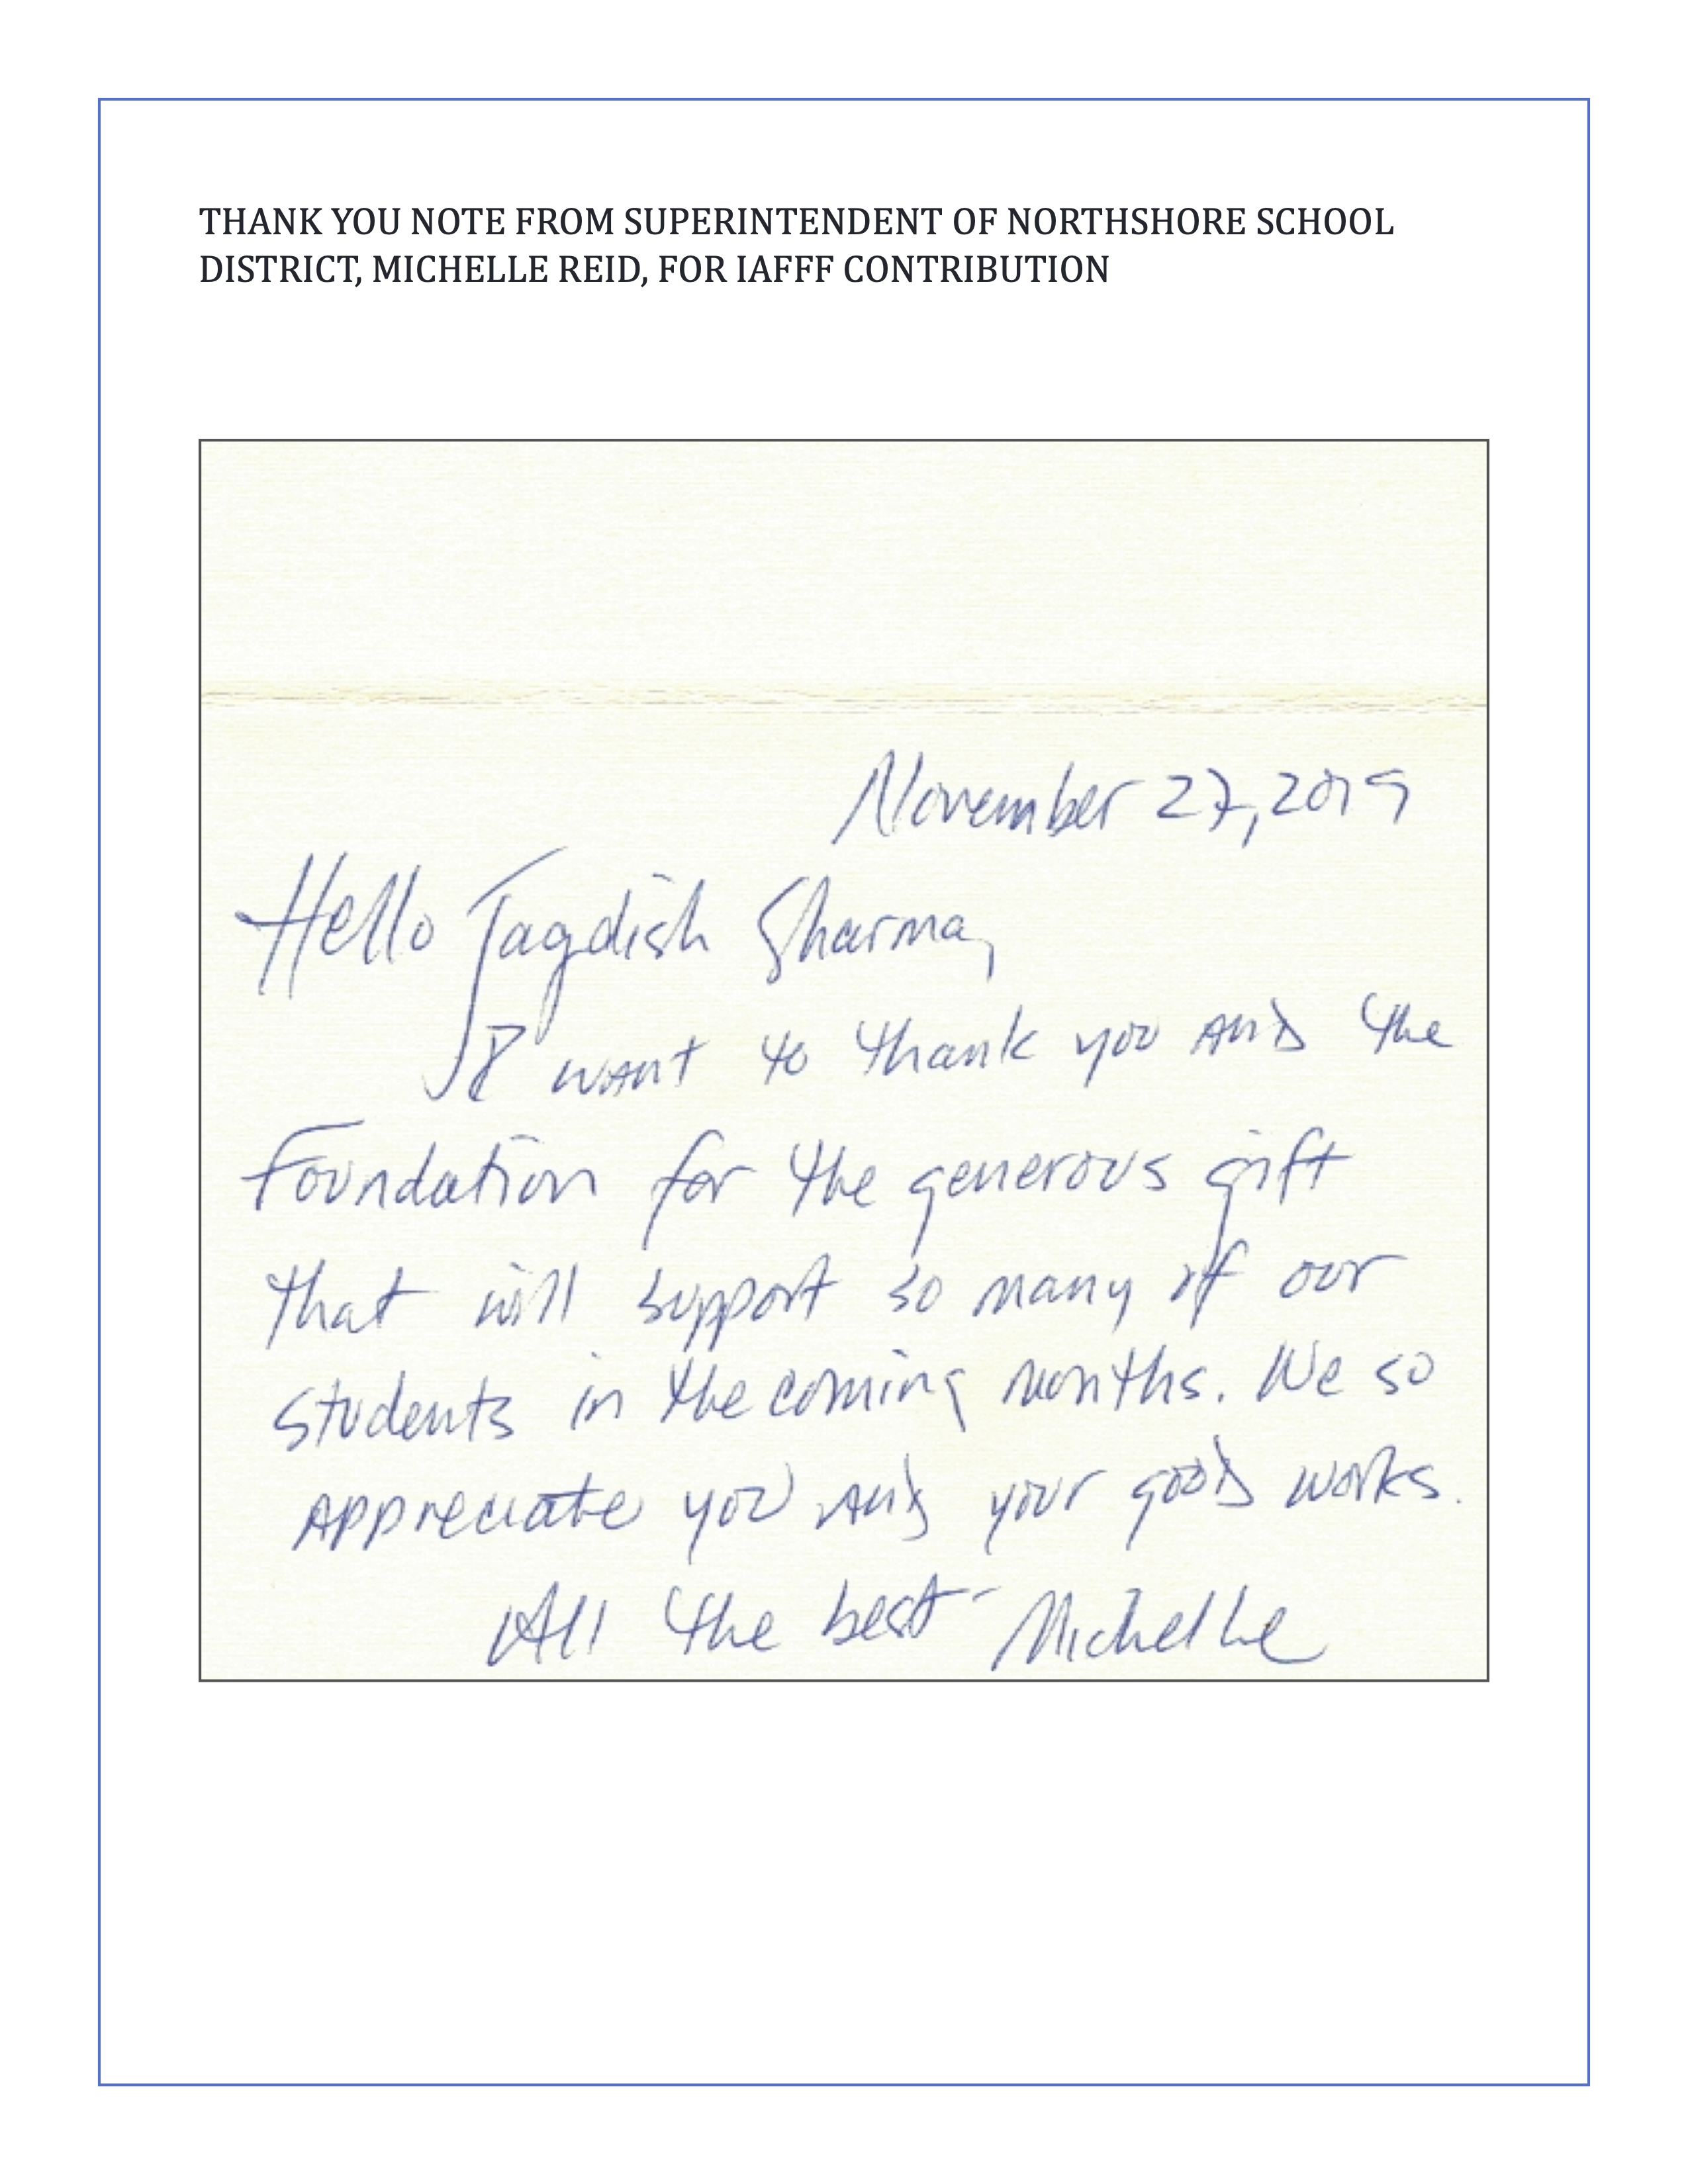 THANK YOU NOTE FROM SUPERINTENDENT OF NORTHSHORE SCHOOL
DISTRICT, MICHELLE REID, FOR IAFFF CONTRIBUTION
November 27, 2019
Hello Jagdish Sharma,
I want to thank you and the
Foundation for the generous gift
that will support so many of our
students in the coming months. We so
appreciate you and your good works.
All the best - Michelle